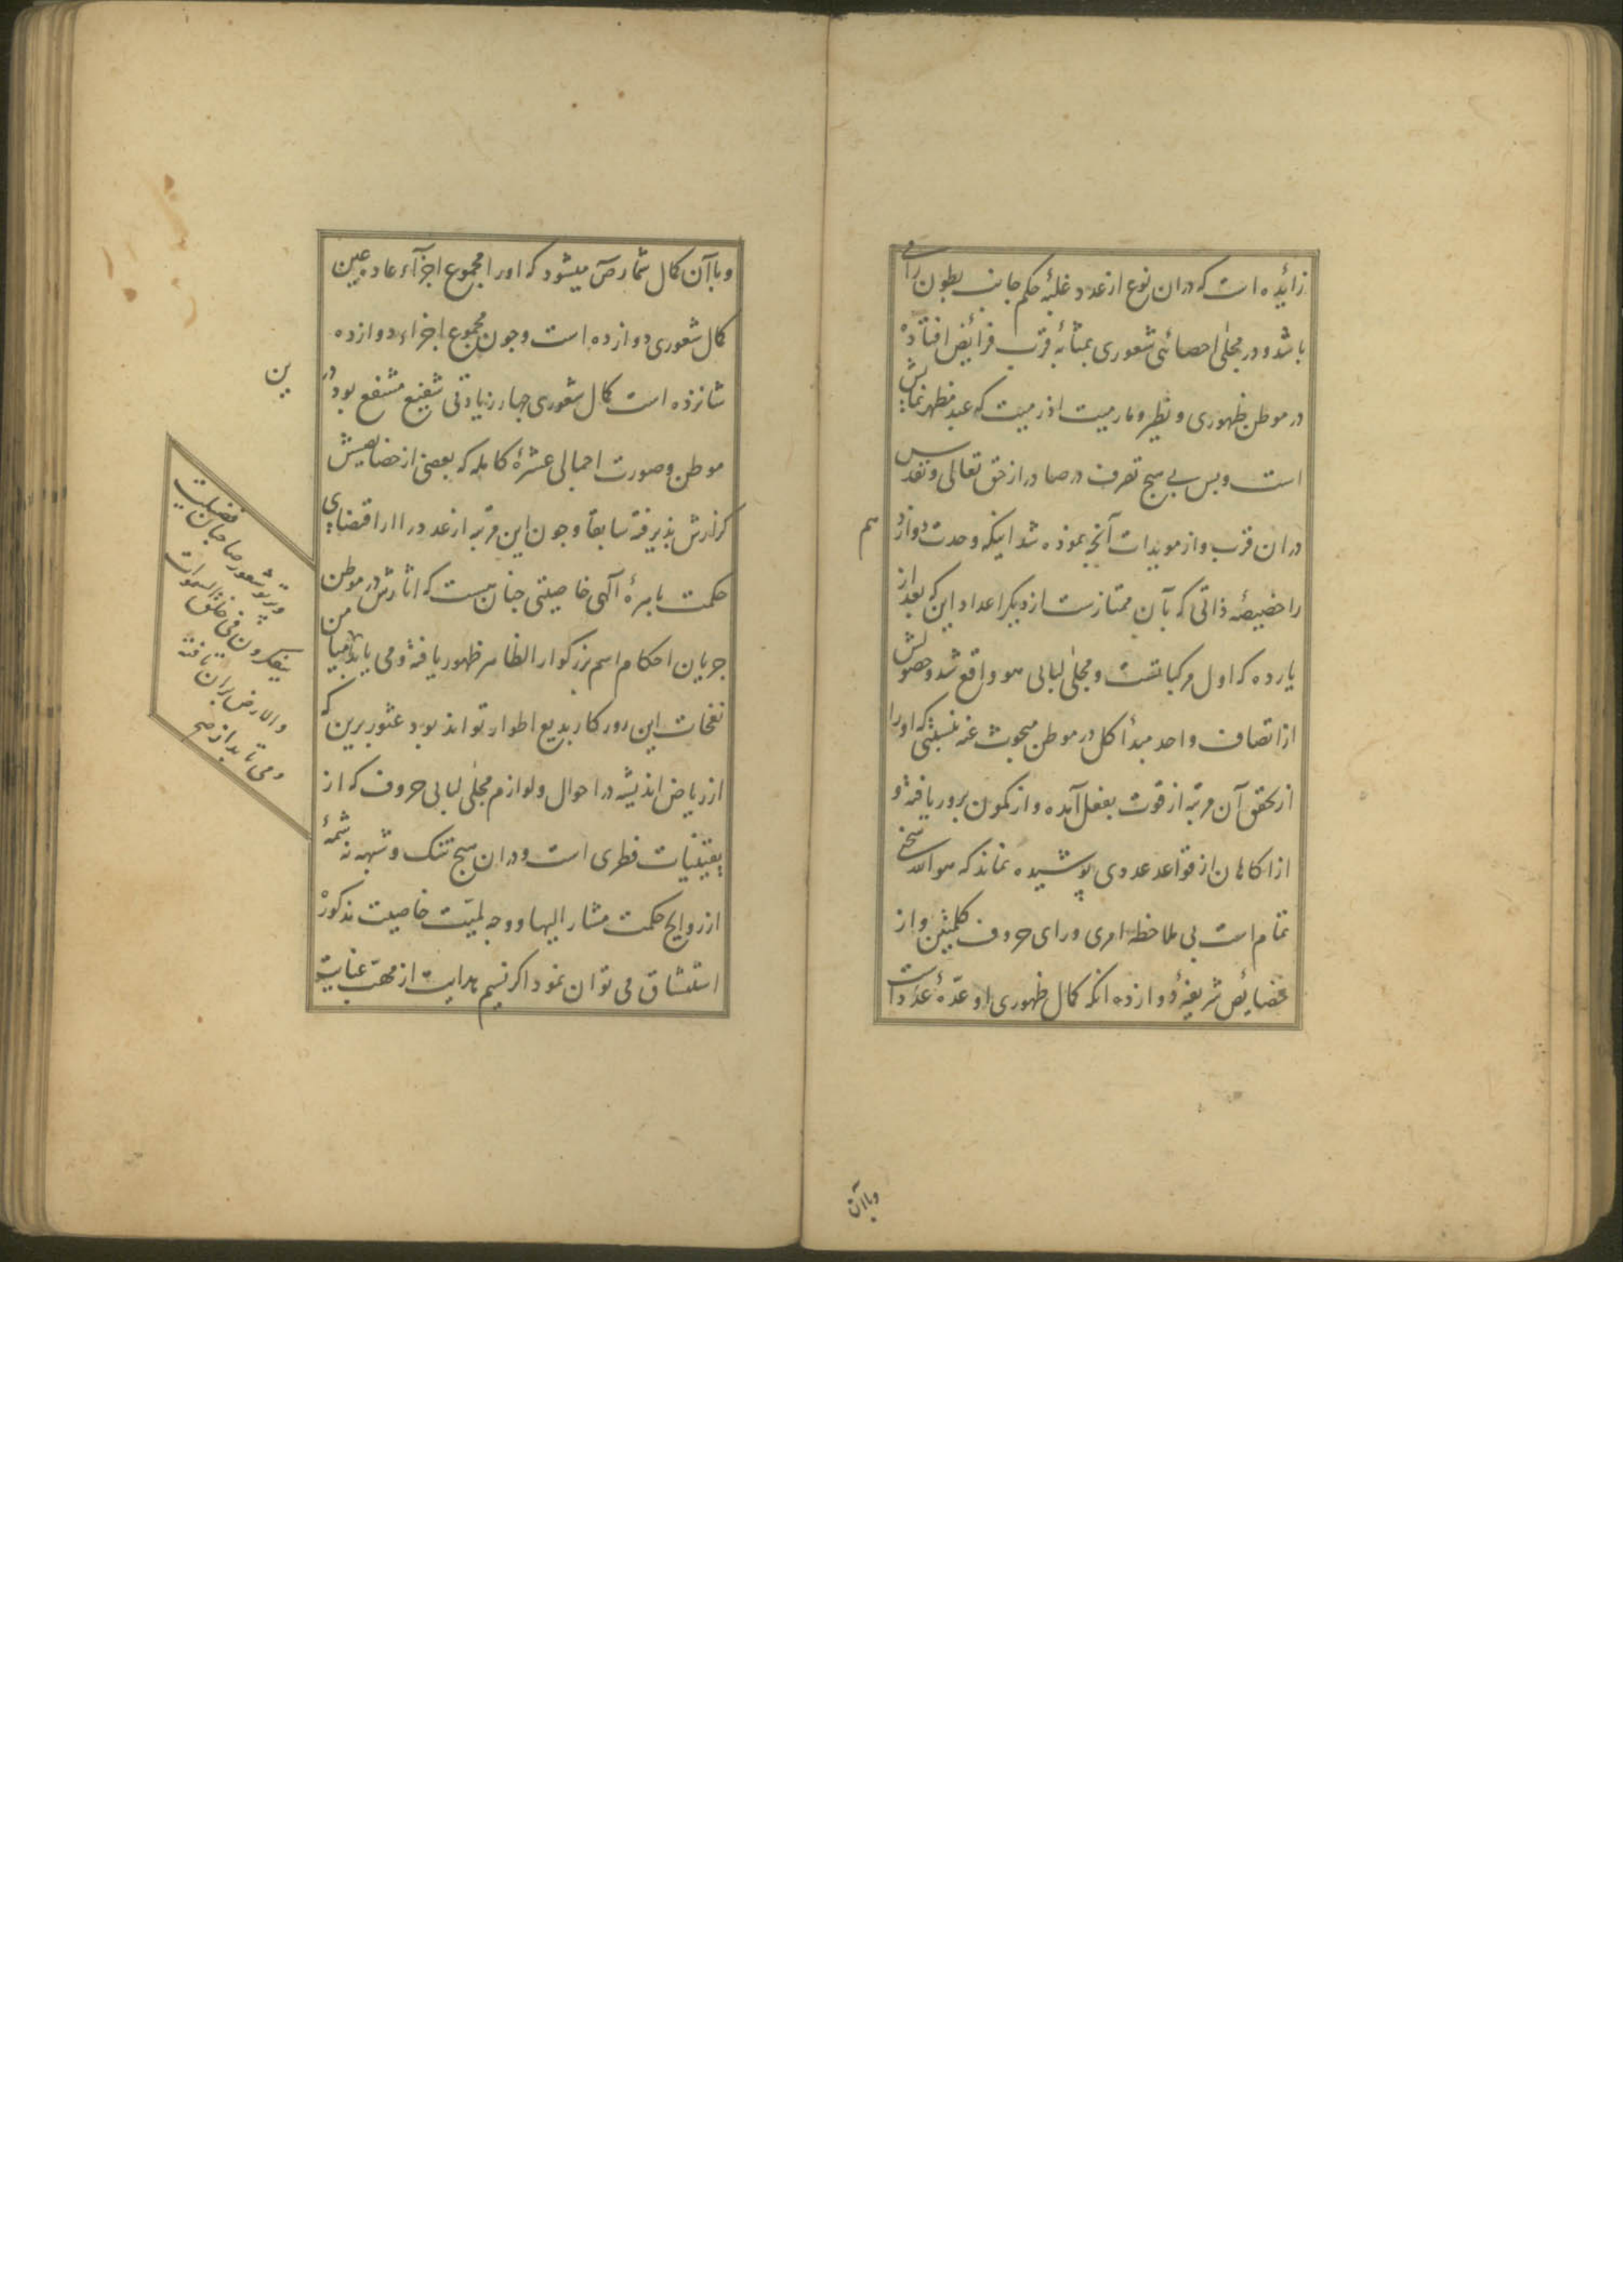 زائده است که دران نوع از عدد غلبهٔ حکم جانب بطون را
باشد و در مجلی احصائی شعوری بمثابهٔ قرب فرائض افتاده
در موطن ظهوری و نظیر و ما رمیت اذ رمیت که عبد مظهر نمایش
است و بس بی هیچ تصرف در صادر از حق تعالی و تقدس
دران قرب و از مویدات آنچه نموده شد اینکه وحدت دوازدهم
را خصیصهٔ ذاتی که بآن ممتازست از دیکر اعداد این که بعد از
یازده که اول مرکباتست و مجلی لبابی هو واقع شد و حصولش
از اتصاف واحد مبدأ کل در موطن مبحوث عنه بنسبتی که او را
از تحقق آن مرتبه از قوت بفعل آمده و از کمون بروز یافته و
از اکاهان از قواعد عددی پوشیده نماند که هو الله سخنی
تمام است بی ملاحظه امری ورای حروف کلمتین و از
خصایص شریفهٔ دوازده انکه کمال ظهوری او عدّهٔ عدد است
وباآن
وباآن کمال شمار صآ میشود که او را مجموع اجزآء عاده عین
کمال شعوری دوازده است وجون مجموع اجزاء دوازده
شانزده است کمال شعوری جهار زیادتی شفیع مشفع بود در
ین
موطن وصورت اجمالی عشرهٔ کامله که بعضی از خصایصش
کزارش پذیرفته سابقا وجون این مرتبه از عدد را از اقتضای
حکمت باهرهٔ آلهی خاصیتی جنان هست که اثارش در موطن
جریان احکام اسم بزرکوار الظاهر ظهور یافته و می یابد میامن
نفحات این روزکار بدیع اطوار تواند بود عثور برین که
از ریاض اندیشه در احوال و لوازم مجلی لبابی حروف که از
یقینیات فطری است ودران هیج شک وشبهه نه شمهٔ
از روایح حکمت مشار الیها ووجه لمیّت خاصیت مذکور
استنشاق می توان نمود اکر نسیم هدایت از مهبّ عنایت
فضیلت
وپرتو شعور صاحبان
یتفکرون فی خلق السموات
والارض بران تافته
ومی تابد از صح